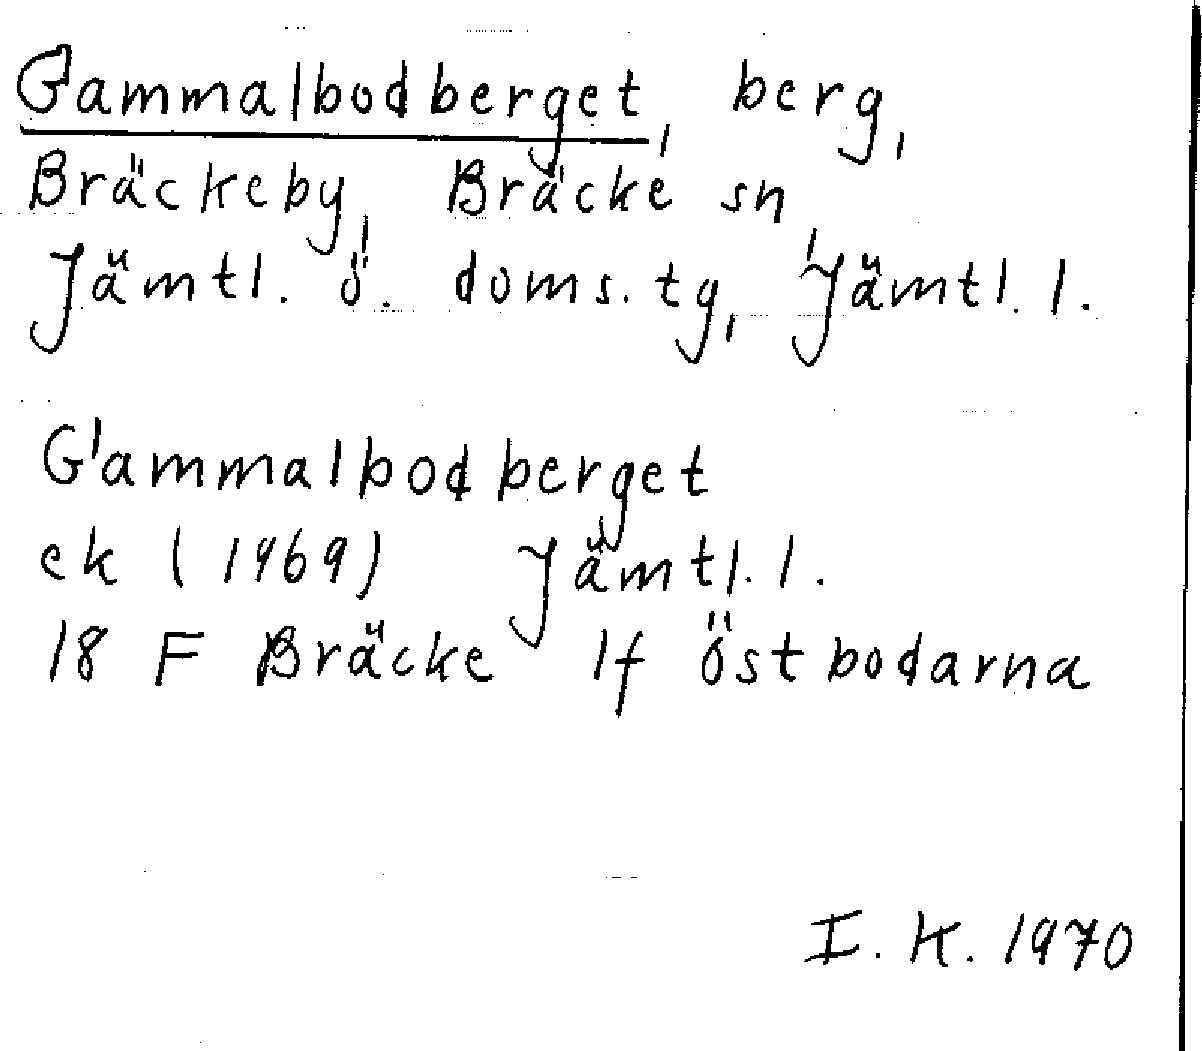 Gammalbodberget, berg,
Bräckeby, Bräcke sn,
Jämtl. ö. doms. tg, Jämtl. l.
Gammalbodberget
ek (1969) Jämtl. l.
18 F Bräcke 1f Östbodarna
I. K. 1970